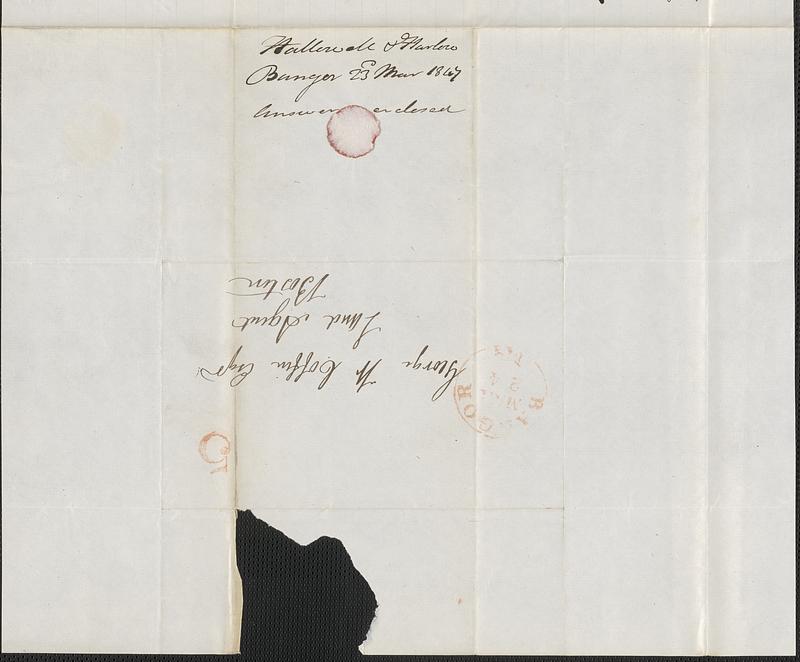 Hallowell & Harlow
Bangor 23d Mar 1847
Answer enclosed
George W Coffin Esqr
Land Agent
Boston
BANGOR
MAR
24
Me
5